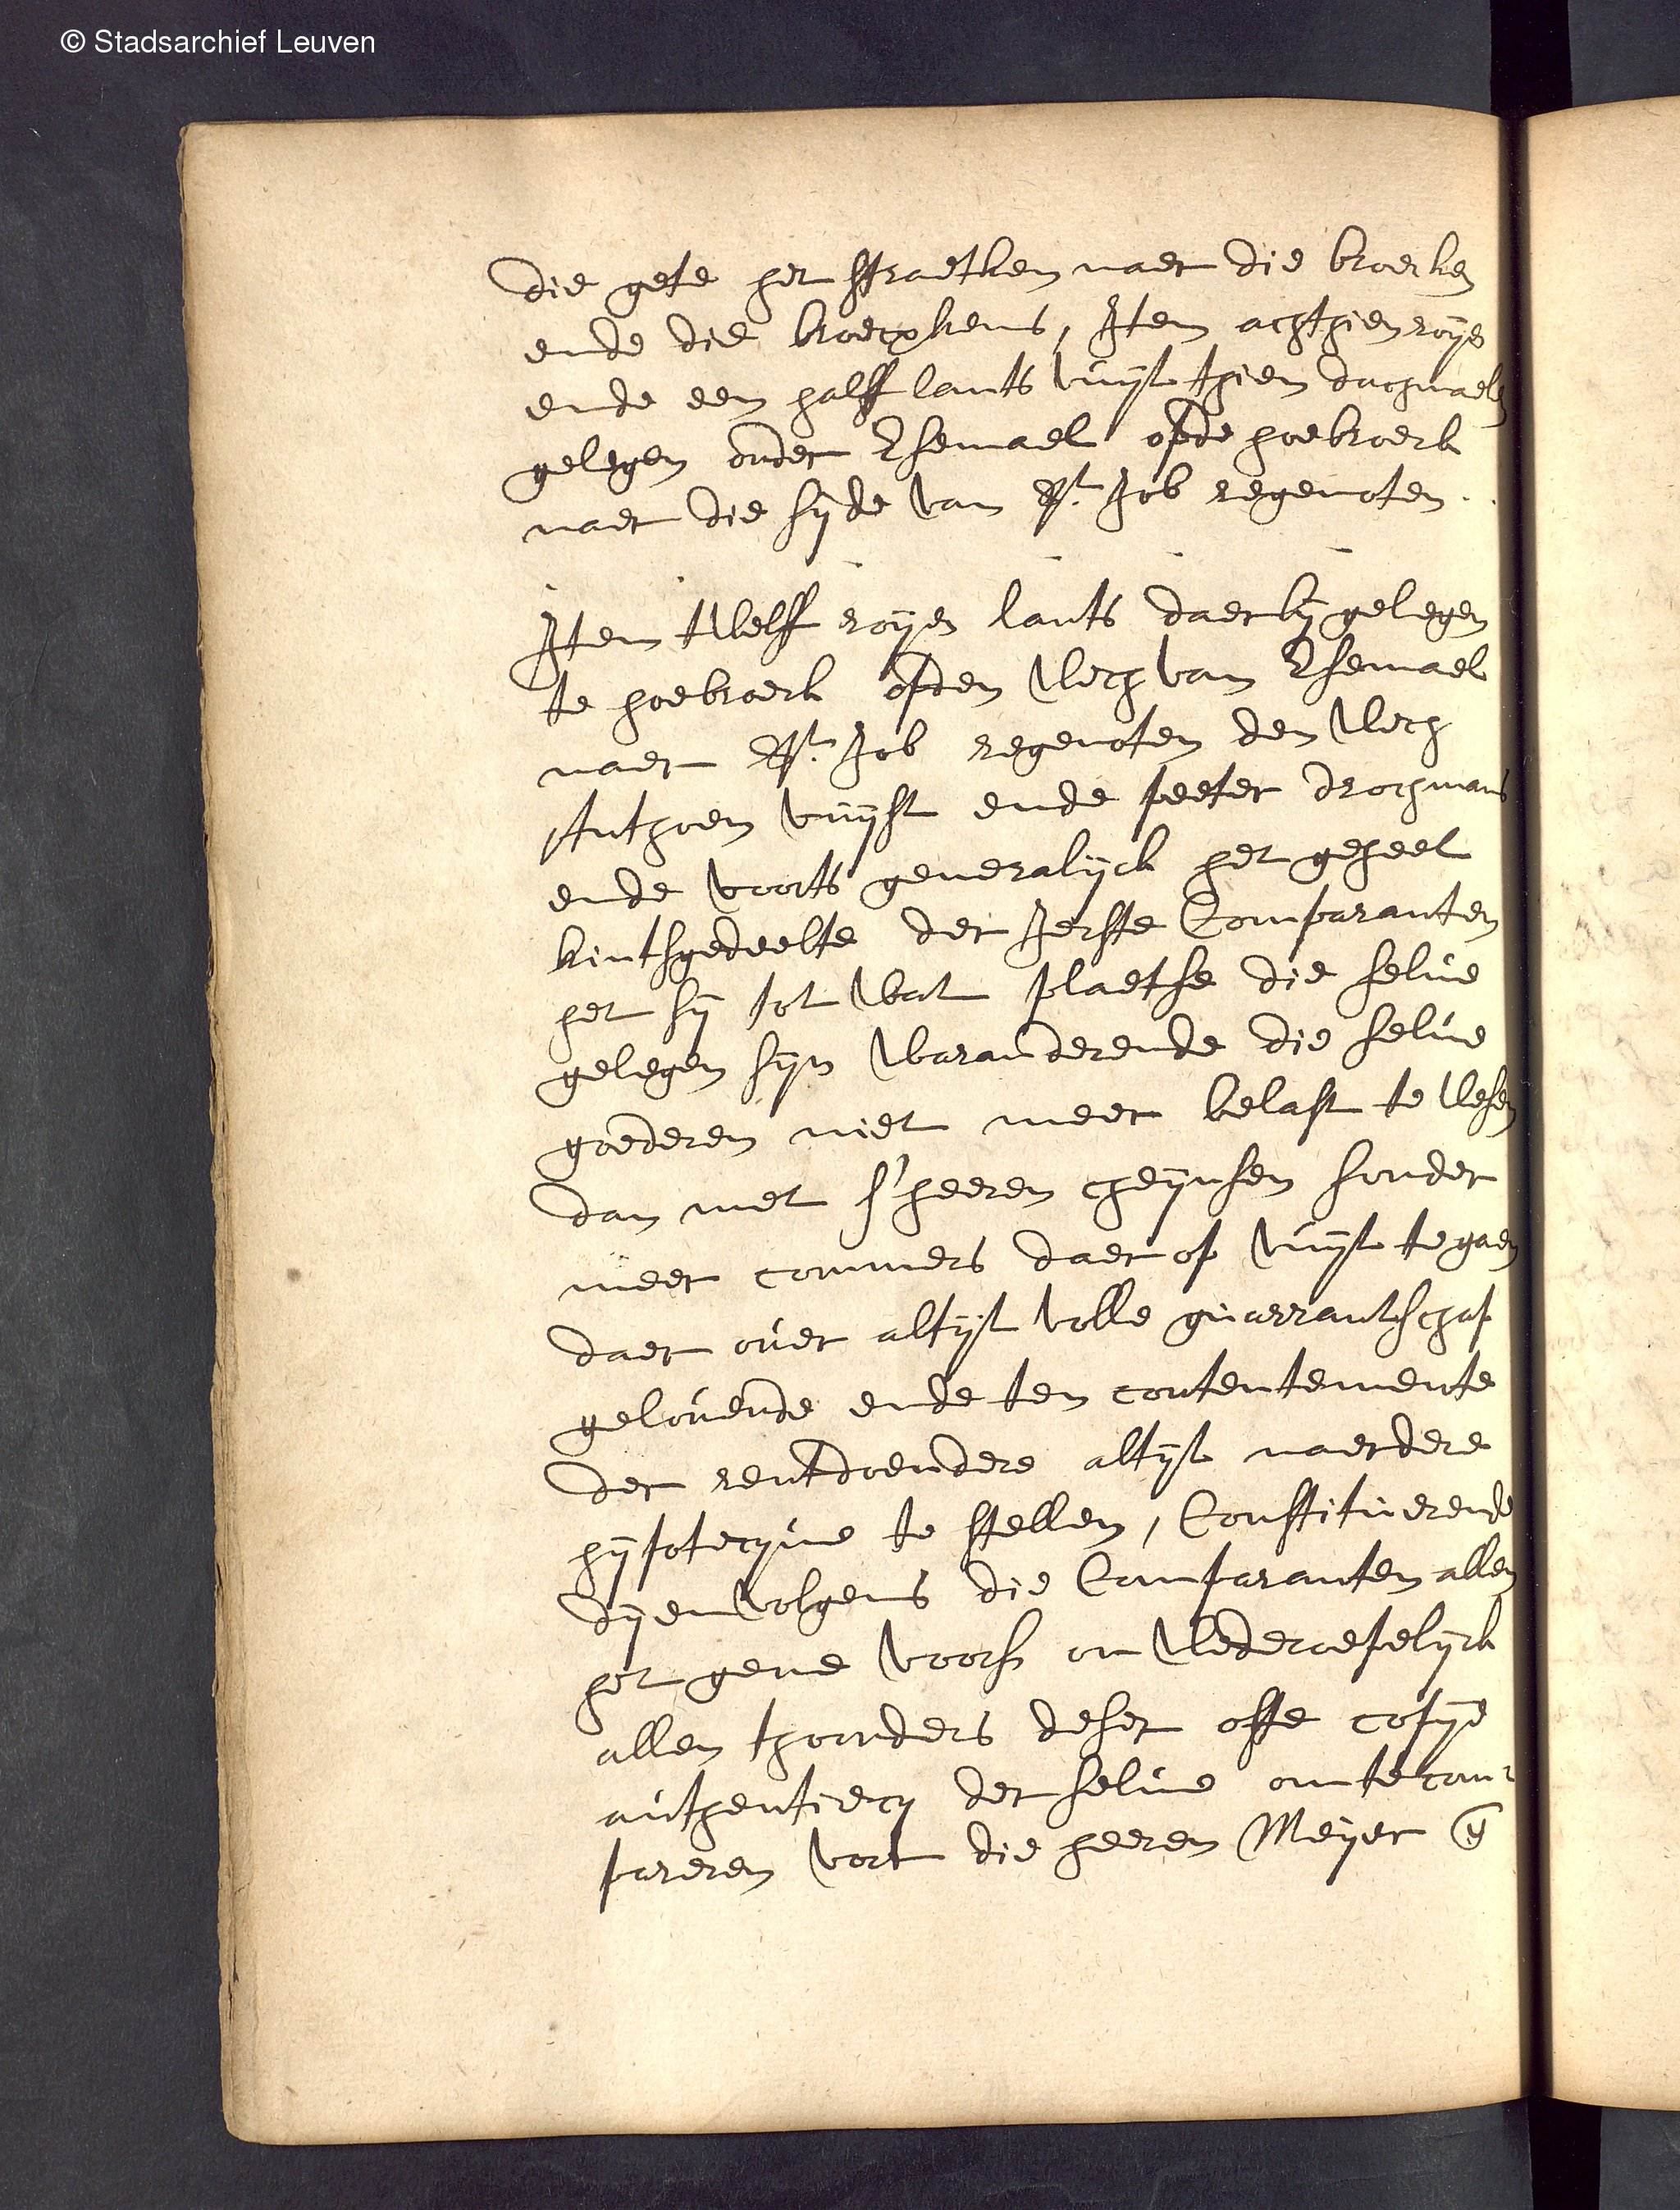 © Stadsarchief Leuven
die gete het straetken naer die broecken
ende die broecxkens, Item achthien royen
ende een halff lants vuijt thien dachmaelen
gelegen onder Esemael opde hoebroeck
naer die sijde van St. Job regenoten
Item twelff royen lants daerbij gelegen
te hoebroeck opden wech van Esemael
naer St. Job regenoten den wech
Anthoen vuijst ende peeter drochmans
ende voorts generalijck het geheel
kintsgedeelte der Ierste Comparanten
het sij tot wat plaetse die selve
gelegen sijn waranderende die selve
goederen niet meer belast te wesen
dan met s'heeren cheijnsen sonder
meer commers daer op vuijt te gaen
daer over altijt volle guarrantschap
gelovende ende ten contentemente
der rentdoendere altijt naerdere
hijpotecque te stellen, Constituerende
dijenvolgens die Comparanten allen
het gene voors onwederoepelijck
allen thoonders deser ofte copije
authenticq der selve om te com¬
pareren voor die heeren Meijer en